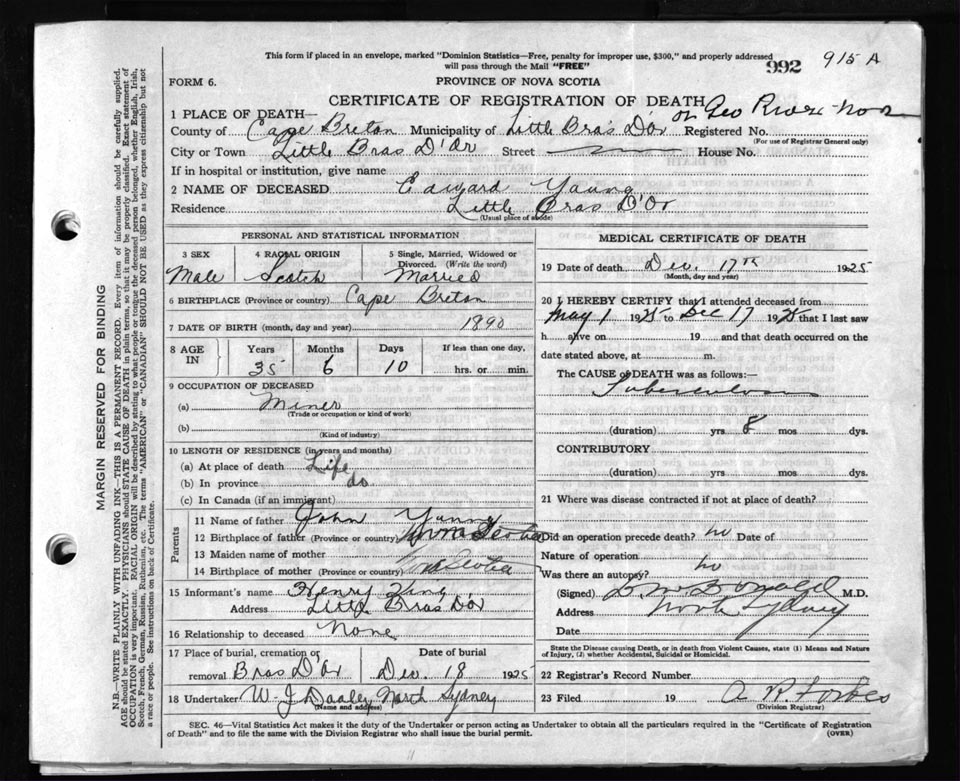 This form if placed in an envelope, marked "Dominion Statistics—Free, penalty for improper use, $300," and properly addressed
will pass through the Mail "FREE"
992
915 A
FORM 6.
PROVINCE OF NOVA SCOTIA
CERTIFICATE OF REGISTRATION OF DEATH
1 PLACE OF DEATH—
or Geo River
County of Cape Breton Municipality of Little Bras D'Or Registered No.
(For use of Registrar General only)
City or Town Little Bras D'Or Street House No.
If in hospital or institution, give name
2 NAME OF DECEASED Edward Young
Residence Little Bras D'Or
(Usual place of abode)
PERSONAL AND STATISTICAL INFORMATION
3 SEX
4 RACIAL ORIGIN
5 Single, Married, Widowed or
Divorced. (Write the word)
Male Scotch Married
6 BIRTHPLACE (Province or country) Cape Breton
7 DATE OF BIRTH (month, day and year) 1890
8 AGE
IN
Years Months Days If less than one day,
35 6 10 hrs. or min.
9 OCCUPATION OF DECEASED
(a) Miner
(Trade or occupation or kind of work)
(b)
(Kind of industry)
10 LENGTH OF RESIDENCE (in years and months)
(a) At place of death Life
(b) In province do
(c) In Canada (if an immigrant)
Parents
11 Name of father John Young
12 Birthplace of father (Province or country) Nova Scotia
13 Maiden name of mother
14 Birthplace of mother (Province or country) Nova Scotia
15 Informant's name Henry King
Address Little Bras D'Or
16 Relationship to deceased None
17 Place of burial, cremation or
removal Bras D'Or
Date of burial
Dec. 18 1925
18 Undertaker W. J. Dooley North Sydney
(Name and address)
MEDICAL CERTIFICATE OF DEATH
19 Date of death Dec. 17th 1925
(Month, day and year)
20 I HEREBY CERTIFY that I attended deceased from
May 1 1925 to Dec 17 1925 that I last saw
h alive on 19 and that death occurred on the
date stated above, at m.
The CAUSE of DEATH was as follows:—
Tuberculosis
(duration) yrs 8 mos dys.
CONTRIBUTORY
(duration) yrs mos dys.
21 Where was disease contracted if not at place of death?
Did an operation precede death? no Date of
Nature of operation
Was there an autopsy? no
(Signed) M.D.
Address North Sydney
Date
State the Disease causing Death, or in death from Violent Causes, state (1) Means and Nature
of Injury, (2) whether Accidental, Suicidal or Homicidal.
22 Registrar's Record Number
23 Filed 19 A R Forbes
(Division Registrar)
SEC. 46—Vital Statistics Act makes it the duty of the Undertaker or person acting as Undertaker to obtain all the particulars required in the "Certificate of Registration
of Death" and to file the same with the Division Registrar who shall issue the burial permit.
(OVER)
MARGIN RESERVED FOR BINDING
N.B.—WRITE PLAINLY WITH UNFADING INK—THIS IS A PERMANENT RECORD. Every item of information should be carefully supplied.
AGE should be stated EXACTLY. PHYSICIANS should STATE CAUSE OF DEATH in plain terms, so that it may be properly classified. Exact statement of
OCCUPATION is very important. RACIAL ORIGIN will be described by stating to what people or tongue the deceased person belonged, whether English, Irish,
Scotch, French, German, Russian, Ruthenian, etc. The terms "AMERICAN" or "CANADIAN" SHOULD NOT BE USED as they express citizenship but not
a race or people. See instructions on back of Certificate.